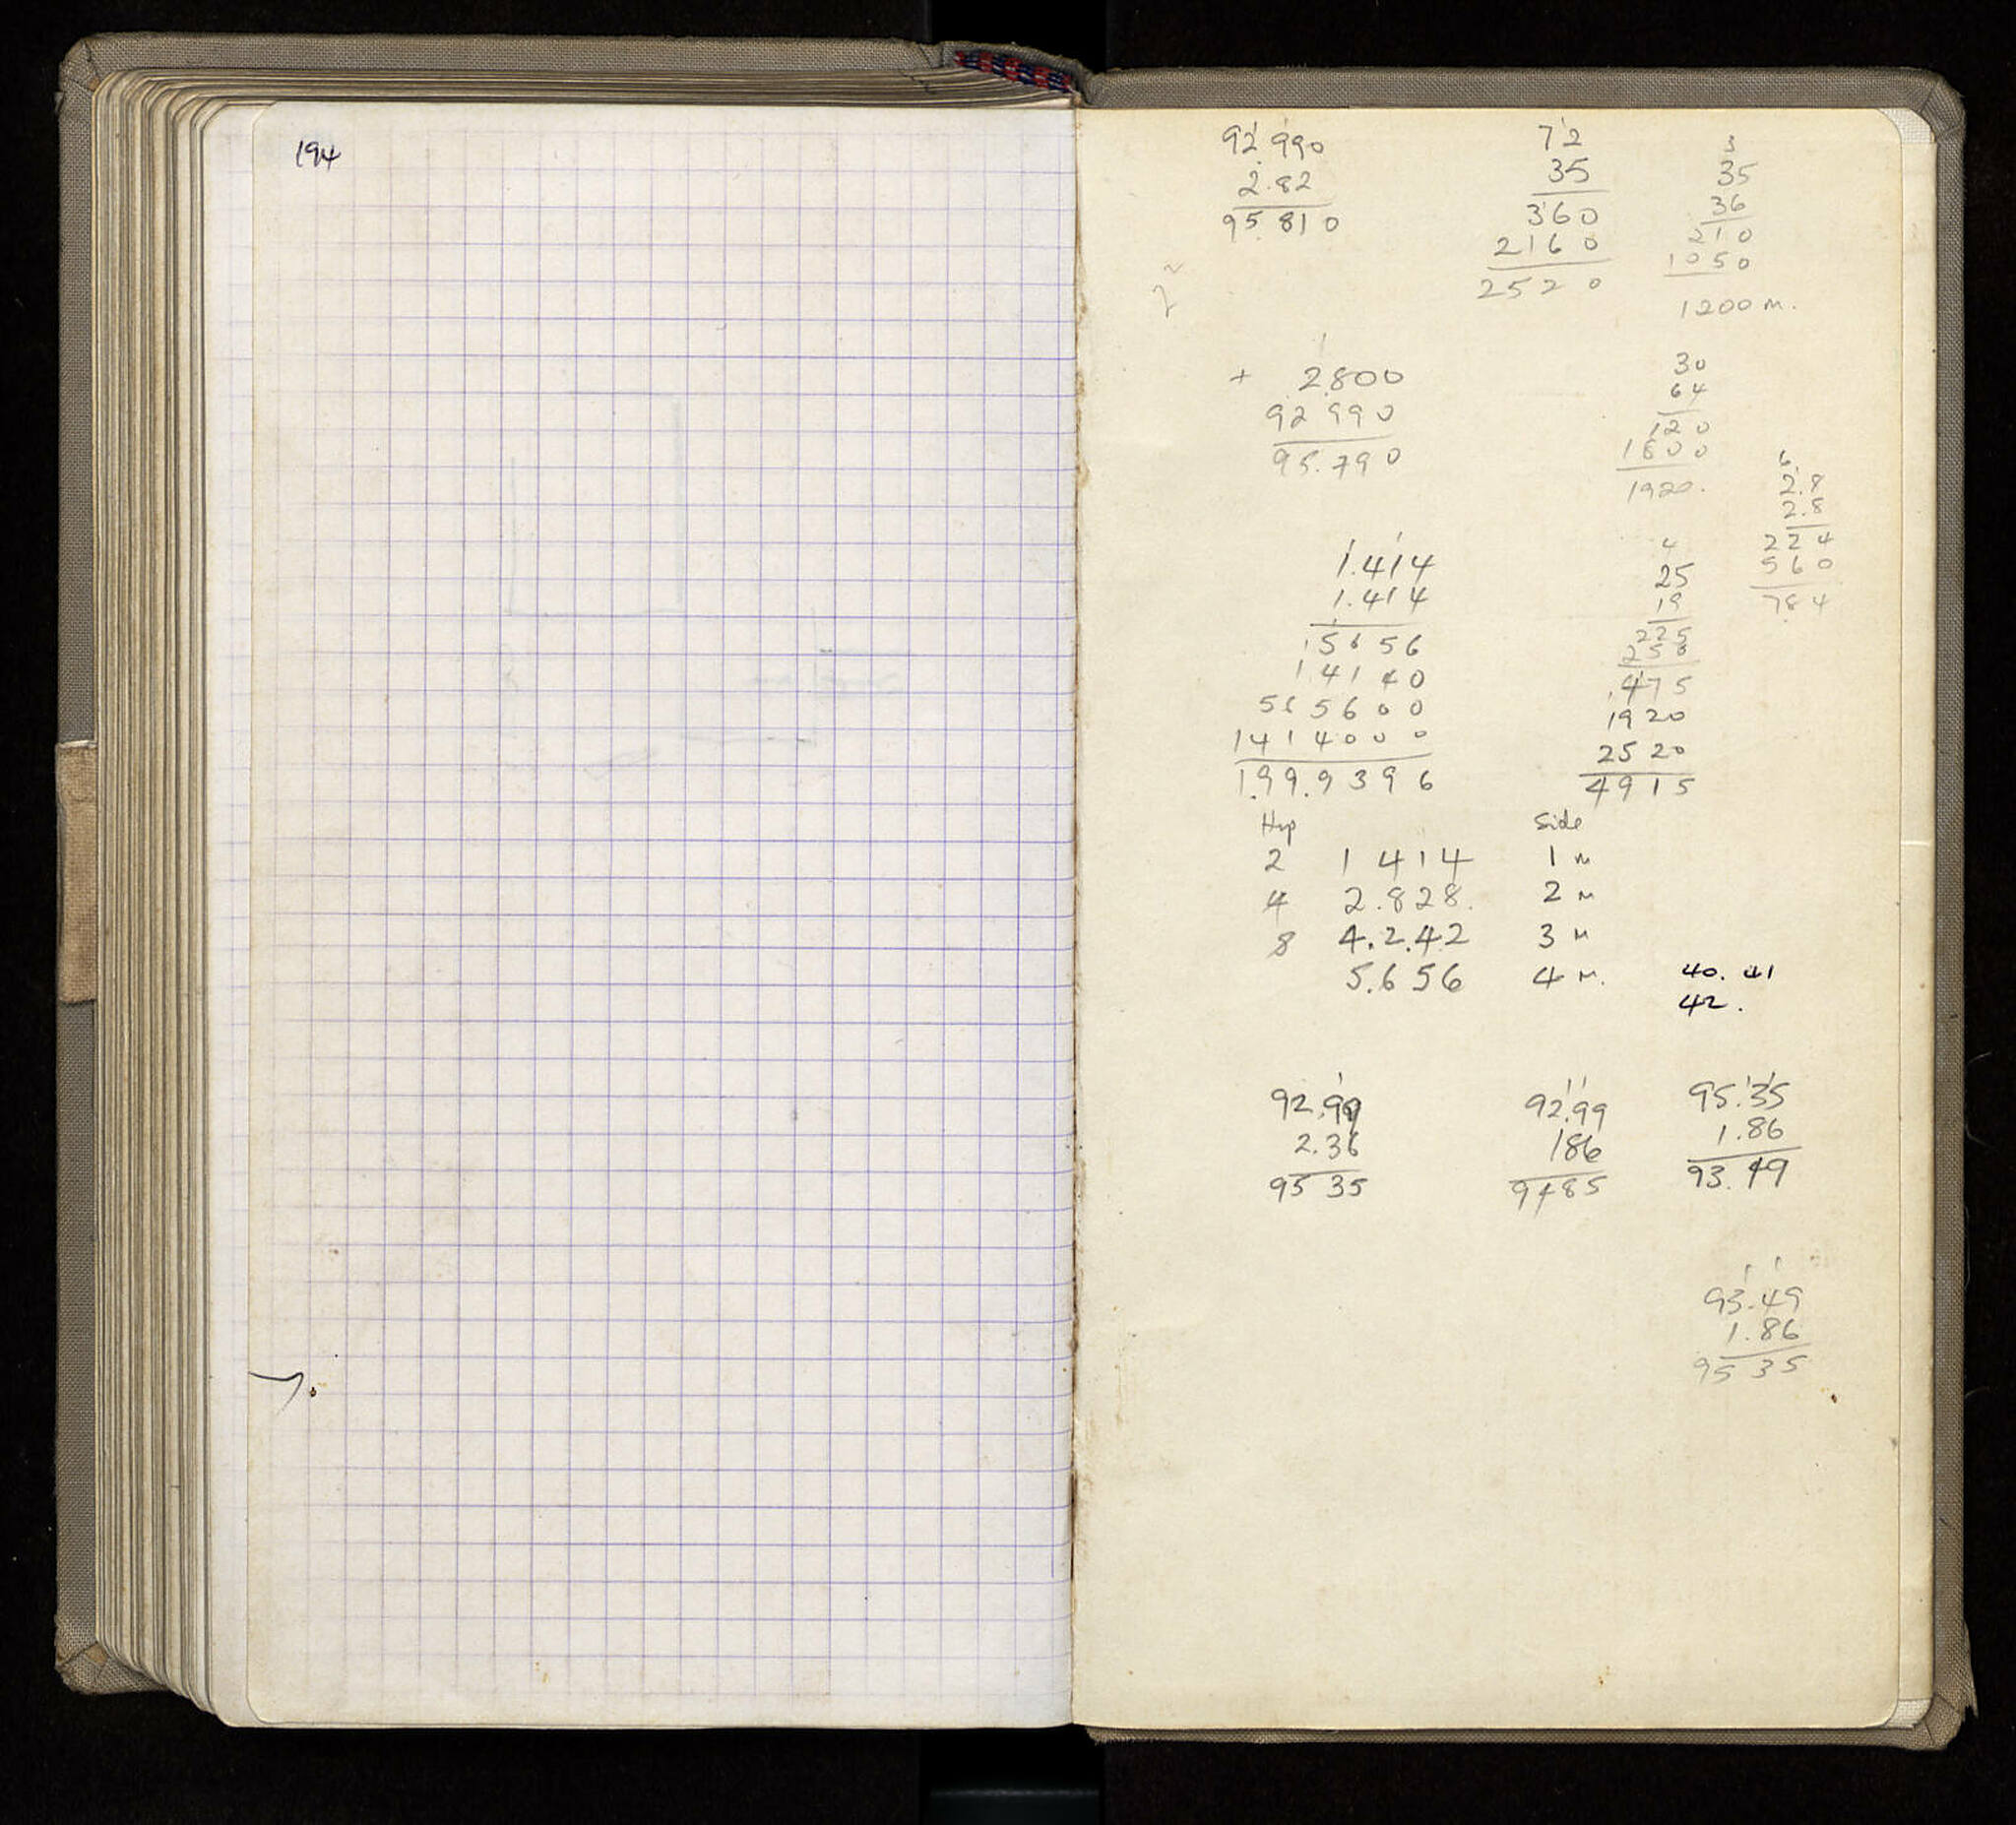 194
92.990
2.82
95.810
72
35
360
2160
2520
3
35
36
210
1050
1200 m.
+ 2800
92 990
95.790
30
64
120
1800
1920.
6
2.8
2.8
224
560
784
1.414
1.414
5656
14140
565600
1414000
1.99.9396
4
25
19
225
250
475
1920
2520
4915
Hyp Side
2 1 414 1 m
4 2.828. 2 m
8 4.242 3 m
5.656 4 m.
40. 41
42.
92.99
2.36
95 35
92.99
186
9485
95.35
1.86
93.49
93.49
1.86
95 35